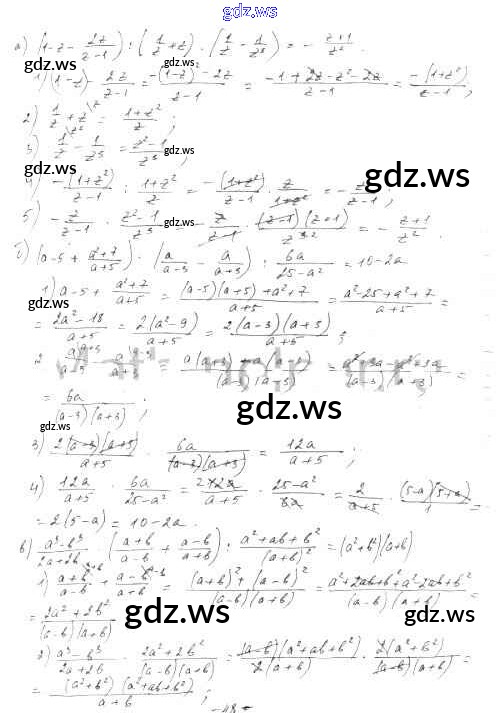 gdz.ws
а) (1-z - 2z/(z-1)) : (1/z + z) · (1/z - 1/z³) = - (z+1)/z².
gdz.ws
1) (1-z) - 2z/(z-1) = (-(1-z)² - 2z)/(z-1) = (-1+2z-z²-2z)/(z-1) = -(1+z²)/(z-1);
2) 1/z + z = (1+z²)/z;
gdz.ws
3) 1/z - 1/z³ = (z²-1)/z³;
gdz.ws
gdz.ws
4) -(1+z²)/(z-1) : (1+z²)/z = -(1+z²)/(z-1) · z/(1+z²) = - z/(z-1);
gdz.ws
5) - z/(z-1) · (z²-1)/z³ = - z/(z-1) · (z-1)(z+1)/z³ = - (z+1)/z².
gdz.ws
б) (a-5 + (a²+7)/(a+5)) · (a/(a-3) - a/(a+3)) : 6a/(25-a²) = 10-2a
1) a-5 + (a²+7)/(a+5) = ((a-5)(a+5)+a²+7)/(a+5) = (a²-25+a²+7)/(a+5) =
= (2a²-18)/(a+5) = 2(a²-9)/(a+5) = 2(a-3)(a+3)/(a+5);
= 6a/((a-3)(a+3));
gdz.ws
3) 2(a-3)(a+3)/(a+5) · 6a/((a-3)(a+3)) = 12a/(a+5);
gdz.ws
4) 12a/(a+5) : 6a/(25-a²) = 12a/(a+5) · (25-a²)/6a = 2/(a+5) · (5-a)(5+a)/1 =
= 2(5-a) = 10-2a.
gdz.ws
в) (a³-b³)/(2a+2b) · ((a+b)/(a-b) + (a-b)/(a+b)) : (a²+ab+b²)/(a+b)² = (a²+b²)(a+b)
1) (a+b)/(a-b) + (a-b)/(a+b) = ((a+b)²+(a-b)²)/((a-b)(a+b)) = (a²+2ab+b²+a²-2ab+b²)/((a-b)(a+b)) =
= (2a²+2b²)/((a-b)(a+b))
gdz.ws
gdz.ws
2) (a³-b³)/(2a+2b) · (2a²+2b²)/((a-b)(a+b)) = (a-b)(a²+ab+b²)/(2(a+b)) · 2(a²+b²)/((a-b)(a+b)) =
= (a²+b²)(a²+ab+b²)/(a+b);
gdz.ws